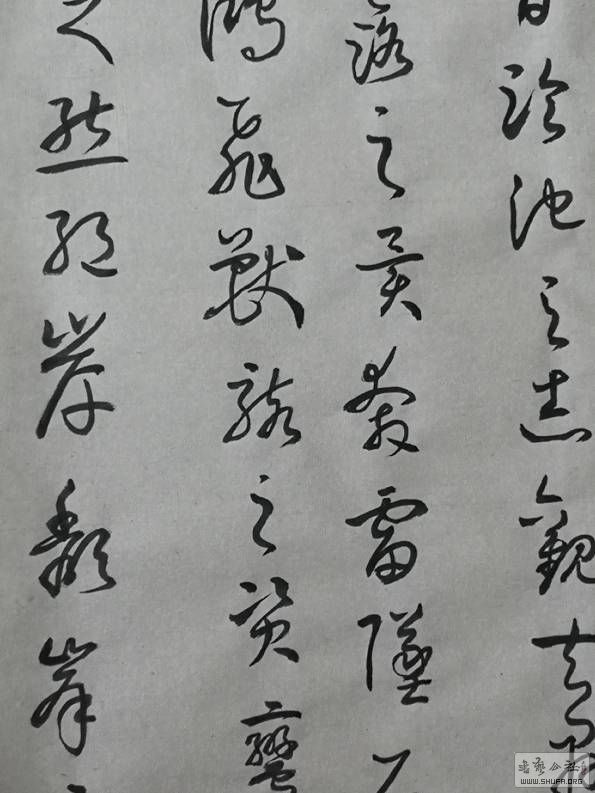 臨池之志觀夫
露之異奔雷墜
鴻飛獸駭之資鸞
之態絕岸頹峰
書藝公社
WWW.SHUFA.ORG